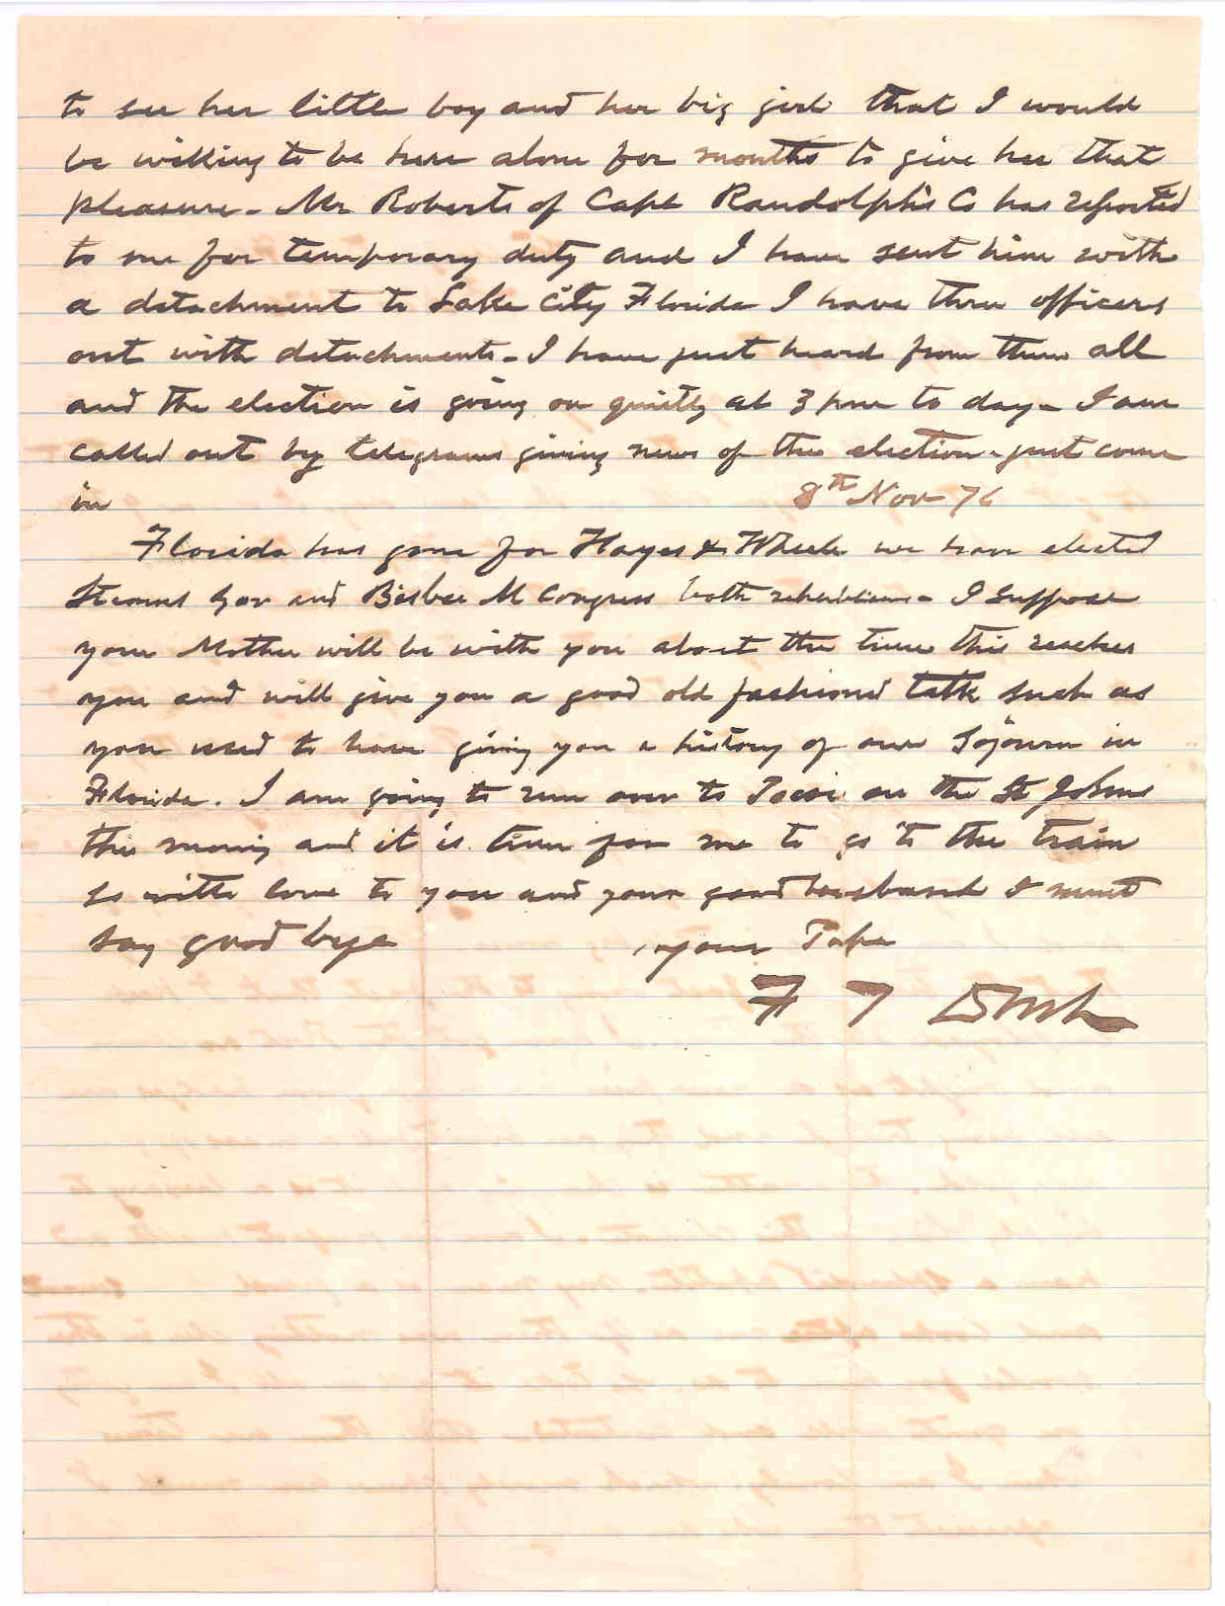 to see her little boy and her big girl that I would
be willing to be here alone for months to give her that
pleasure - Mr Roberts of Capt Randolphs Co has reported
to me for temporary duty and I have sent him with
a detachment to Lake City Florida I have three officers
out with detachments - I have just heard from them all
and the election is going on quietly at 3 pm to day - I am
called out by telegrams giving news of the election - just come
in 8th Nov 76
Florida has gone for Hayes & Wheeler we have elected
Stearns Gov and Bisbee M Congress both republicans - I suppose
your Mother will be with you about the time this reaches
you and will give you a good old fashioned talk such as
you used to have giving you a history of our Sojourn in
Florida. I am going to run over to Tocoi on the St Johns
this morning and it is time for me to go to the train
so with love to you and your good husband I must
say good bye your Papa
F T